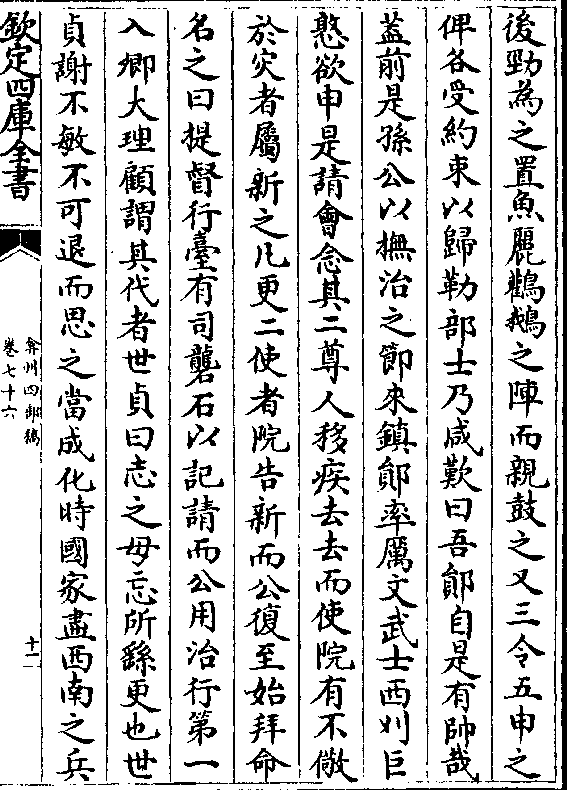 後勁為之置魚麗鸛鵝之陣而親鼓之又三令五申之
俾各受約束以歸勒部士乃咸歎曰吾鄖自是有帥哉
蓋前是孫公以撫治之節來鎮鄖率厲文武士西刈巨
憝欲申是請會念其二尊人移疾去去而使院有不儆
於災者屬新之凡更二使者院告新而公復至始拜命
名之曰提督行臺有司礱石以記請而公用治行第一
入卿大理顧謂其代者世貞曰志之毋忘所繇更也世
貞謝不敏不可退而思之當成化時國家盡西南之兵
欽定四庫全書
弇州四部稿
卷七十六
十二